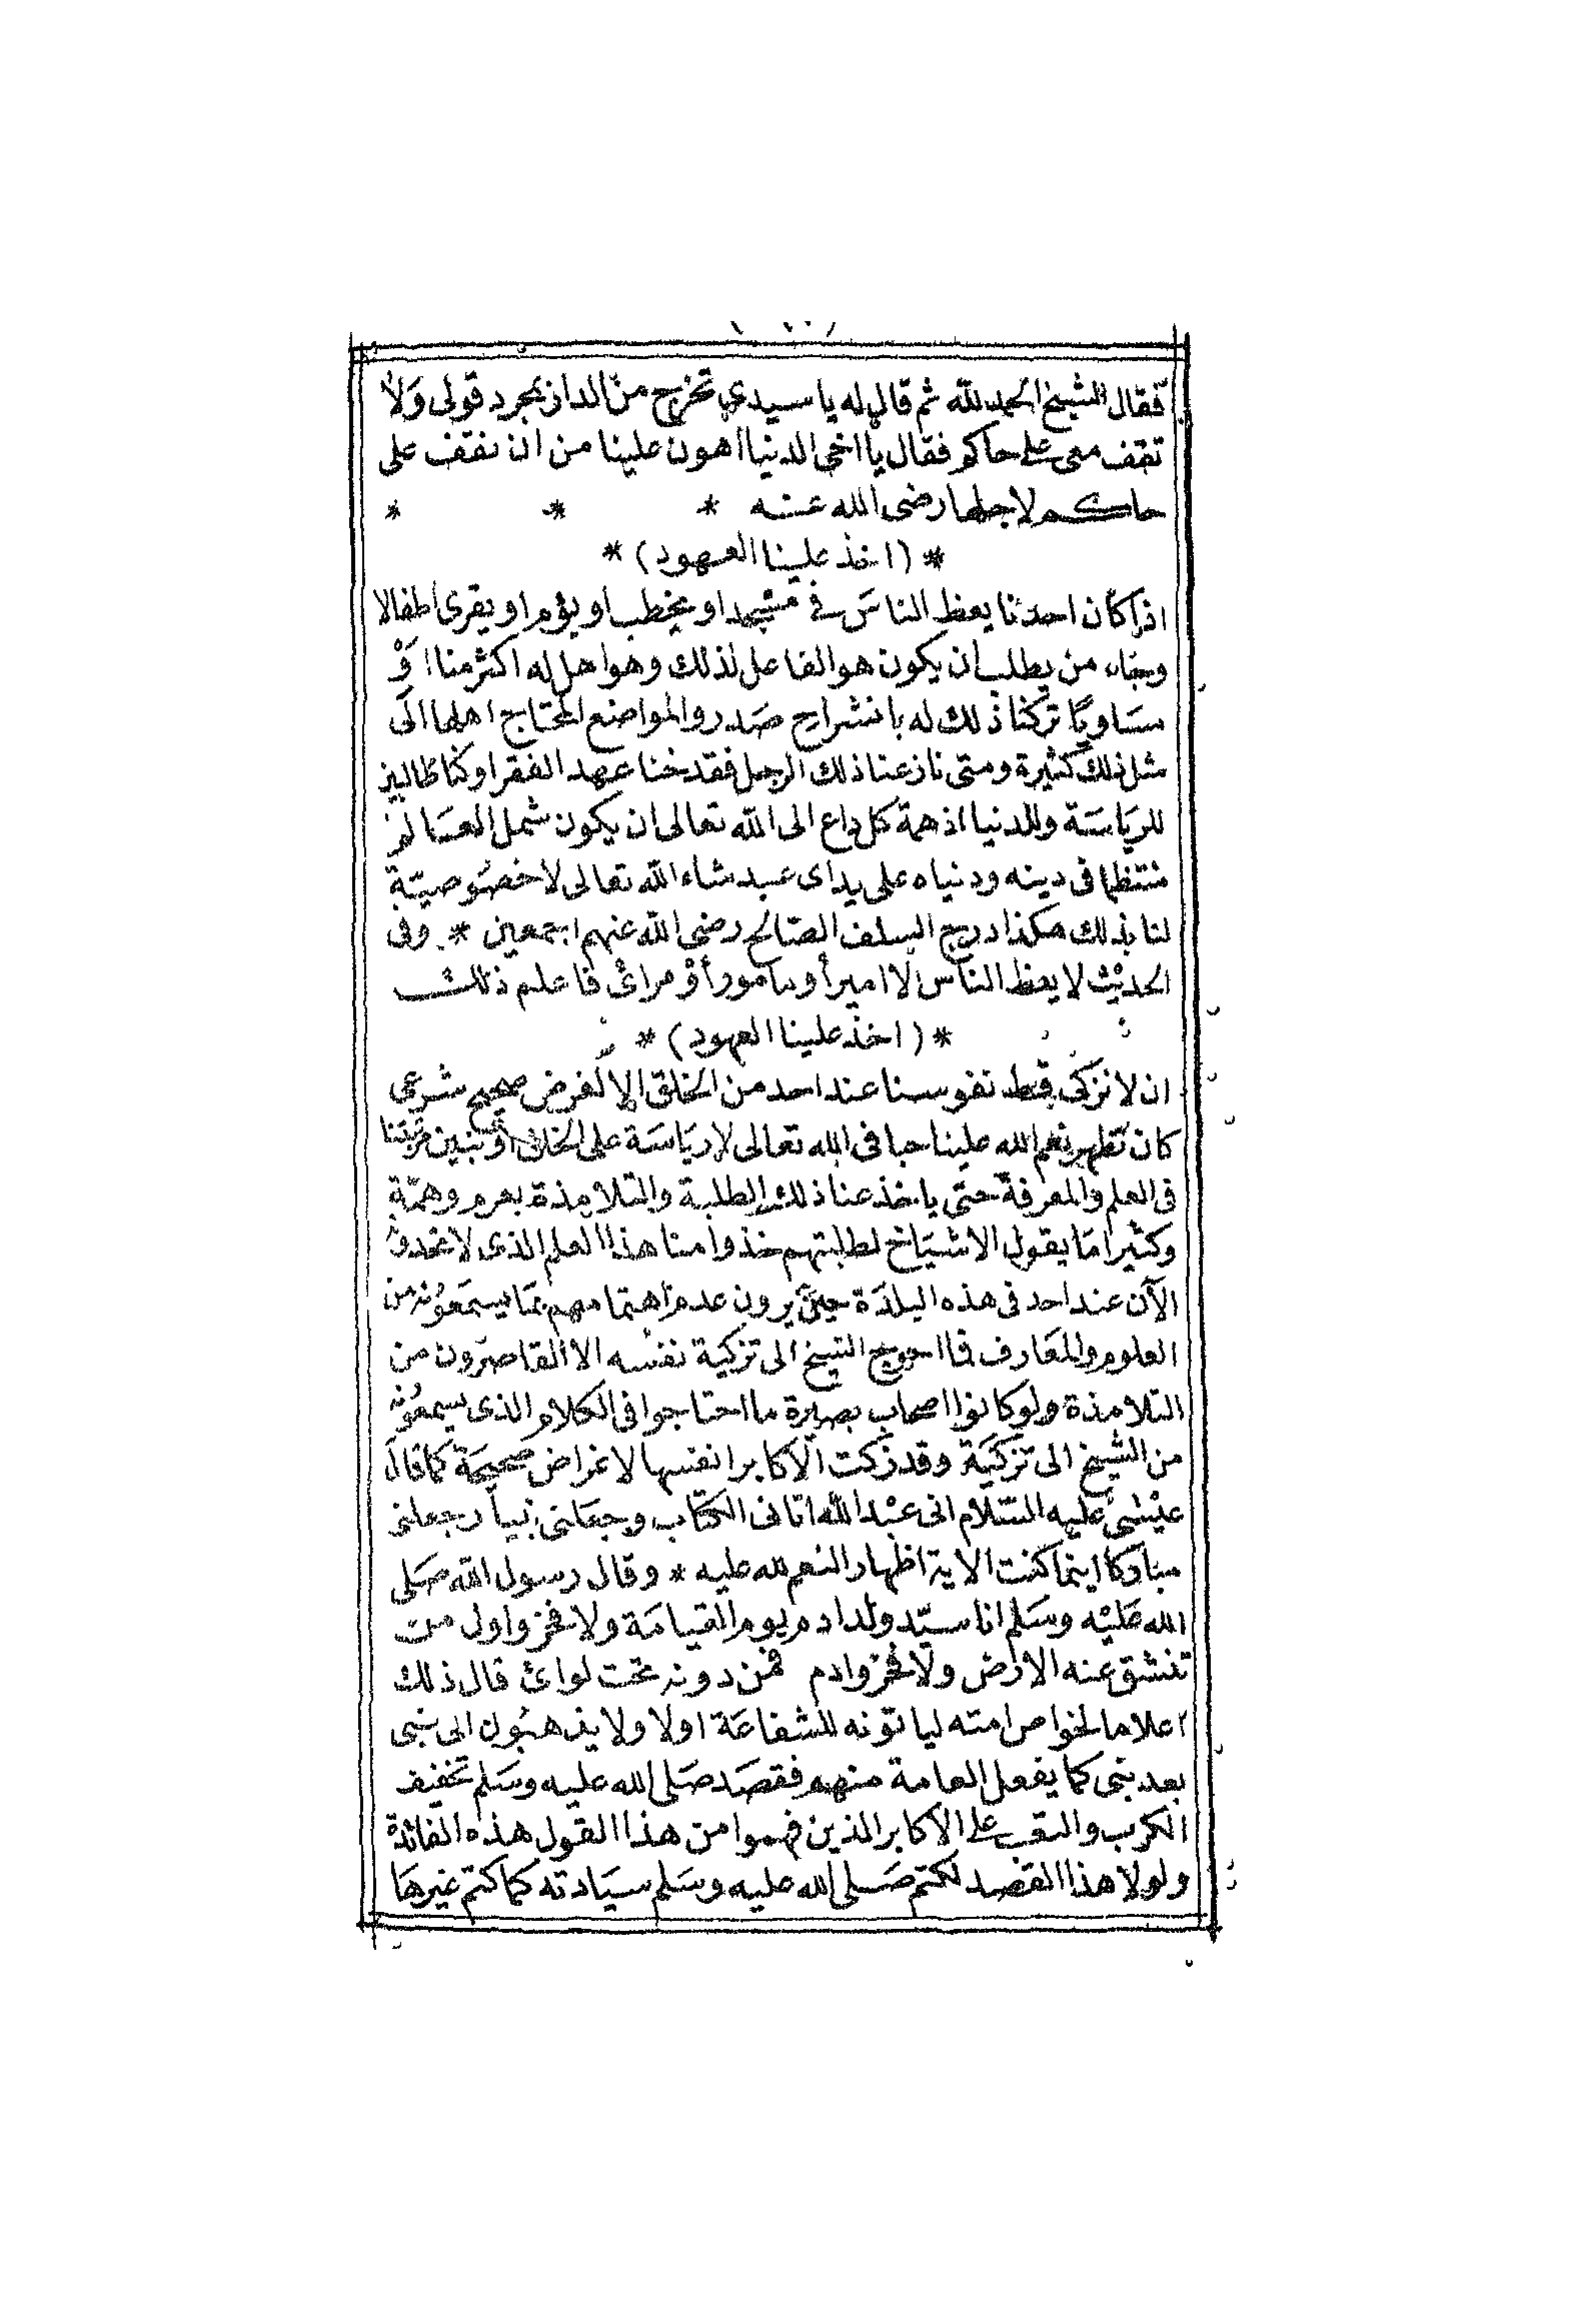 فقال الشيخ الحمد لله ثم قال له يا سيدى تخرج من الدار بمجرد قولى ولا
تقف معى على حاكم فقال يا اخى الدنيا اهون علينا من ان نقف على
حاكم لاجلها رضى الله عنه * * *
* (اخذ علينا العهود) *
اذا كان احدنا يعظ الناس فى مسجد او يخطب او يؤم او يقرى اطفالا
وجاء من يطلب ان يكون هو الفاعل لذلك وهو اهل له اكثر منا او
مساويا تركنا ذلك له بانشراح صدر والمواضع المحتاج اهلها الى
مثل ذلك كثيرة ومتى نازعنا ذلك الرجل فقد خنا عهد الفقرا وكنا طالبين
للرياسة وللدنيا اذ همة كل داع الى الله تعالى ان يكون شمل العالم
منتظما فى دينه ودنياه على يد اى عبد شاء الله تعالى لا خصوصية
لنا بذلك هكذا درج السلف الصالح رضى الله عنهم اجمعين * وفى
الحديث لا يعظ الناس الا اميرا أو مامورا أو مرائى فاعلم ذلك
* (اخذ علينا العهود) *
ان لا نزكى قط نفوسنا عند احد من الخلق الا لغرض صحيح شرعى
كان نظهر نعم الله علينا حبا فى الله تعالى لا رياسة على الخلق أو نبين مرتبتنا
فى العلم والمعرفة حتى ياخذ عنا ذلك الطلبة والتلامذة بعزم وهمة
وكثيرا ما يقول الاشياخ لطلبتهم خذوا منا هذا العلم الذى لا تجدوه
الآن عند احد فى هذه البلدة حين يرون عدم اهتمامهم بما يسمعونه من
العلوم والمعارف فما احوج الشيخ الى تزكية نفسه الا القاصرون من
التلامذة ولو كانوا اصحاب بصيرة ما احتاجوا فى الكلام الذى يسمعونه
من الشيخ الى تزكية وقد زكت الاكابر انفسها لاغراض صحيحة كما قال
عيسى عليه السلام انى عبد الله اتانى الكتاب وجعلنى نبيا وجعلنى
مباركا اينما كنت الاية اظهار النعم لله عليه * وقال رسول الله صلى
الله عليه وسلم انا سيد ولد ادم يوم القيامة ولا فخر واول من
تنشق عنه الارض ولا فخر وادم فمن دونه تحت لوائ قال ذلك
اعلاما لخواص امته لياتونه للشفاعة اولا ولا يذهبون الى نبى
بعد نبى كما يفعل العامة منهم فقصد صلى الله عليه وسلم تخفيف
الكرب والتعب على الاكابر الذين فهموا من هذا القول هذه الفائدة
ولولا هذا القصد لكتم صلى الله عليه وسلم سيادته كما كتم غيرها